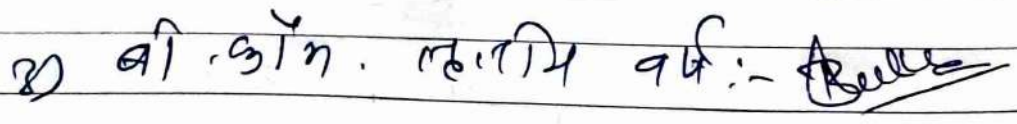 3) बी.कॉम. तृतीय वर्ष:-